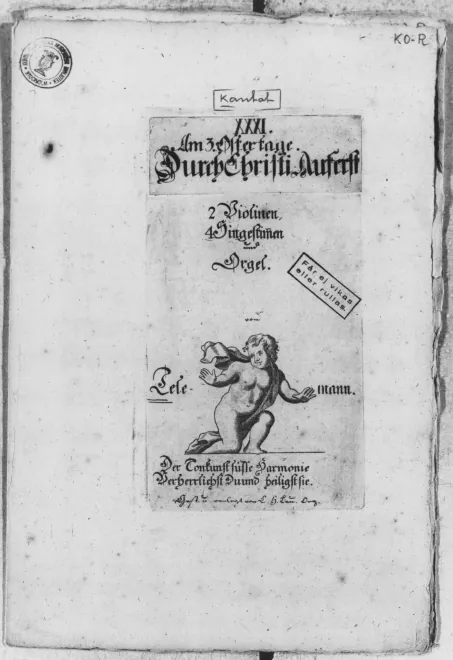 KO-R
Kantat
XXXI.
Am 3. Ostertage.
Durch Christi Auferst
2 Violinen,
4 Singestimen
und
Orgel.
Får ej vikas
eller rullas.
von
Tele-
mann.
Der Tonkunst süsse Harmonie
Verherrlichst Du und heiligst sie.